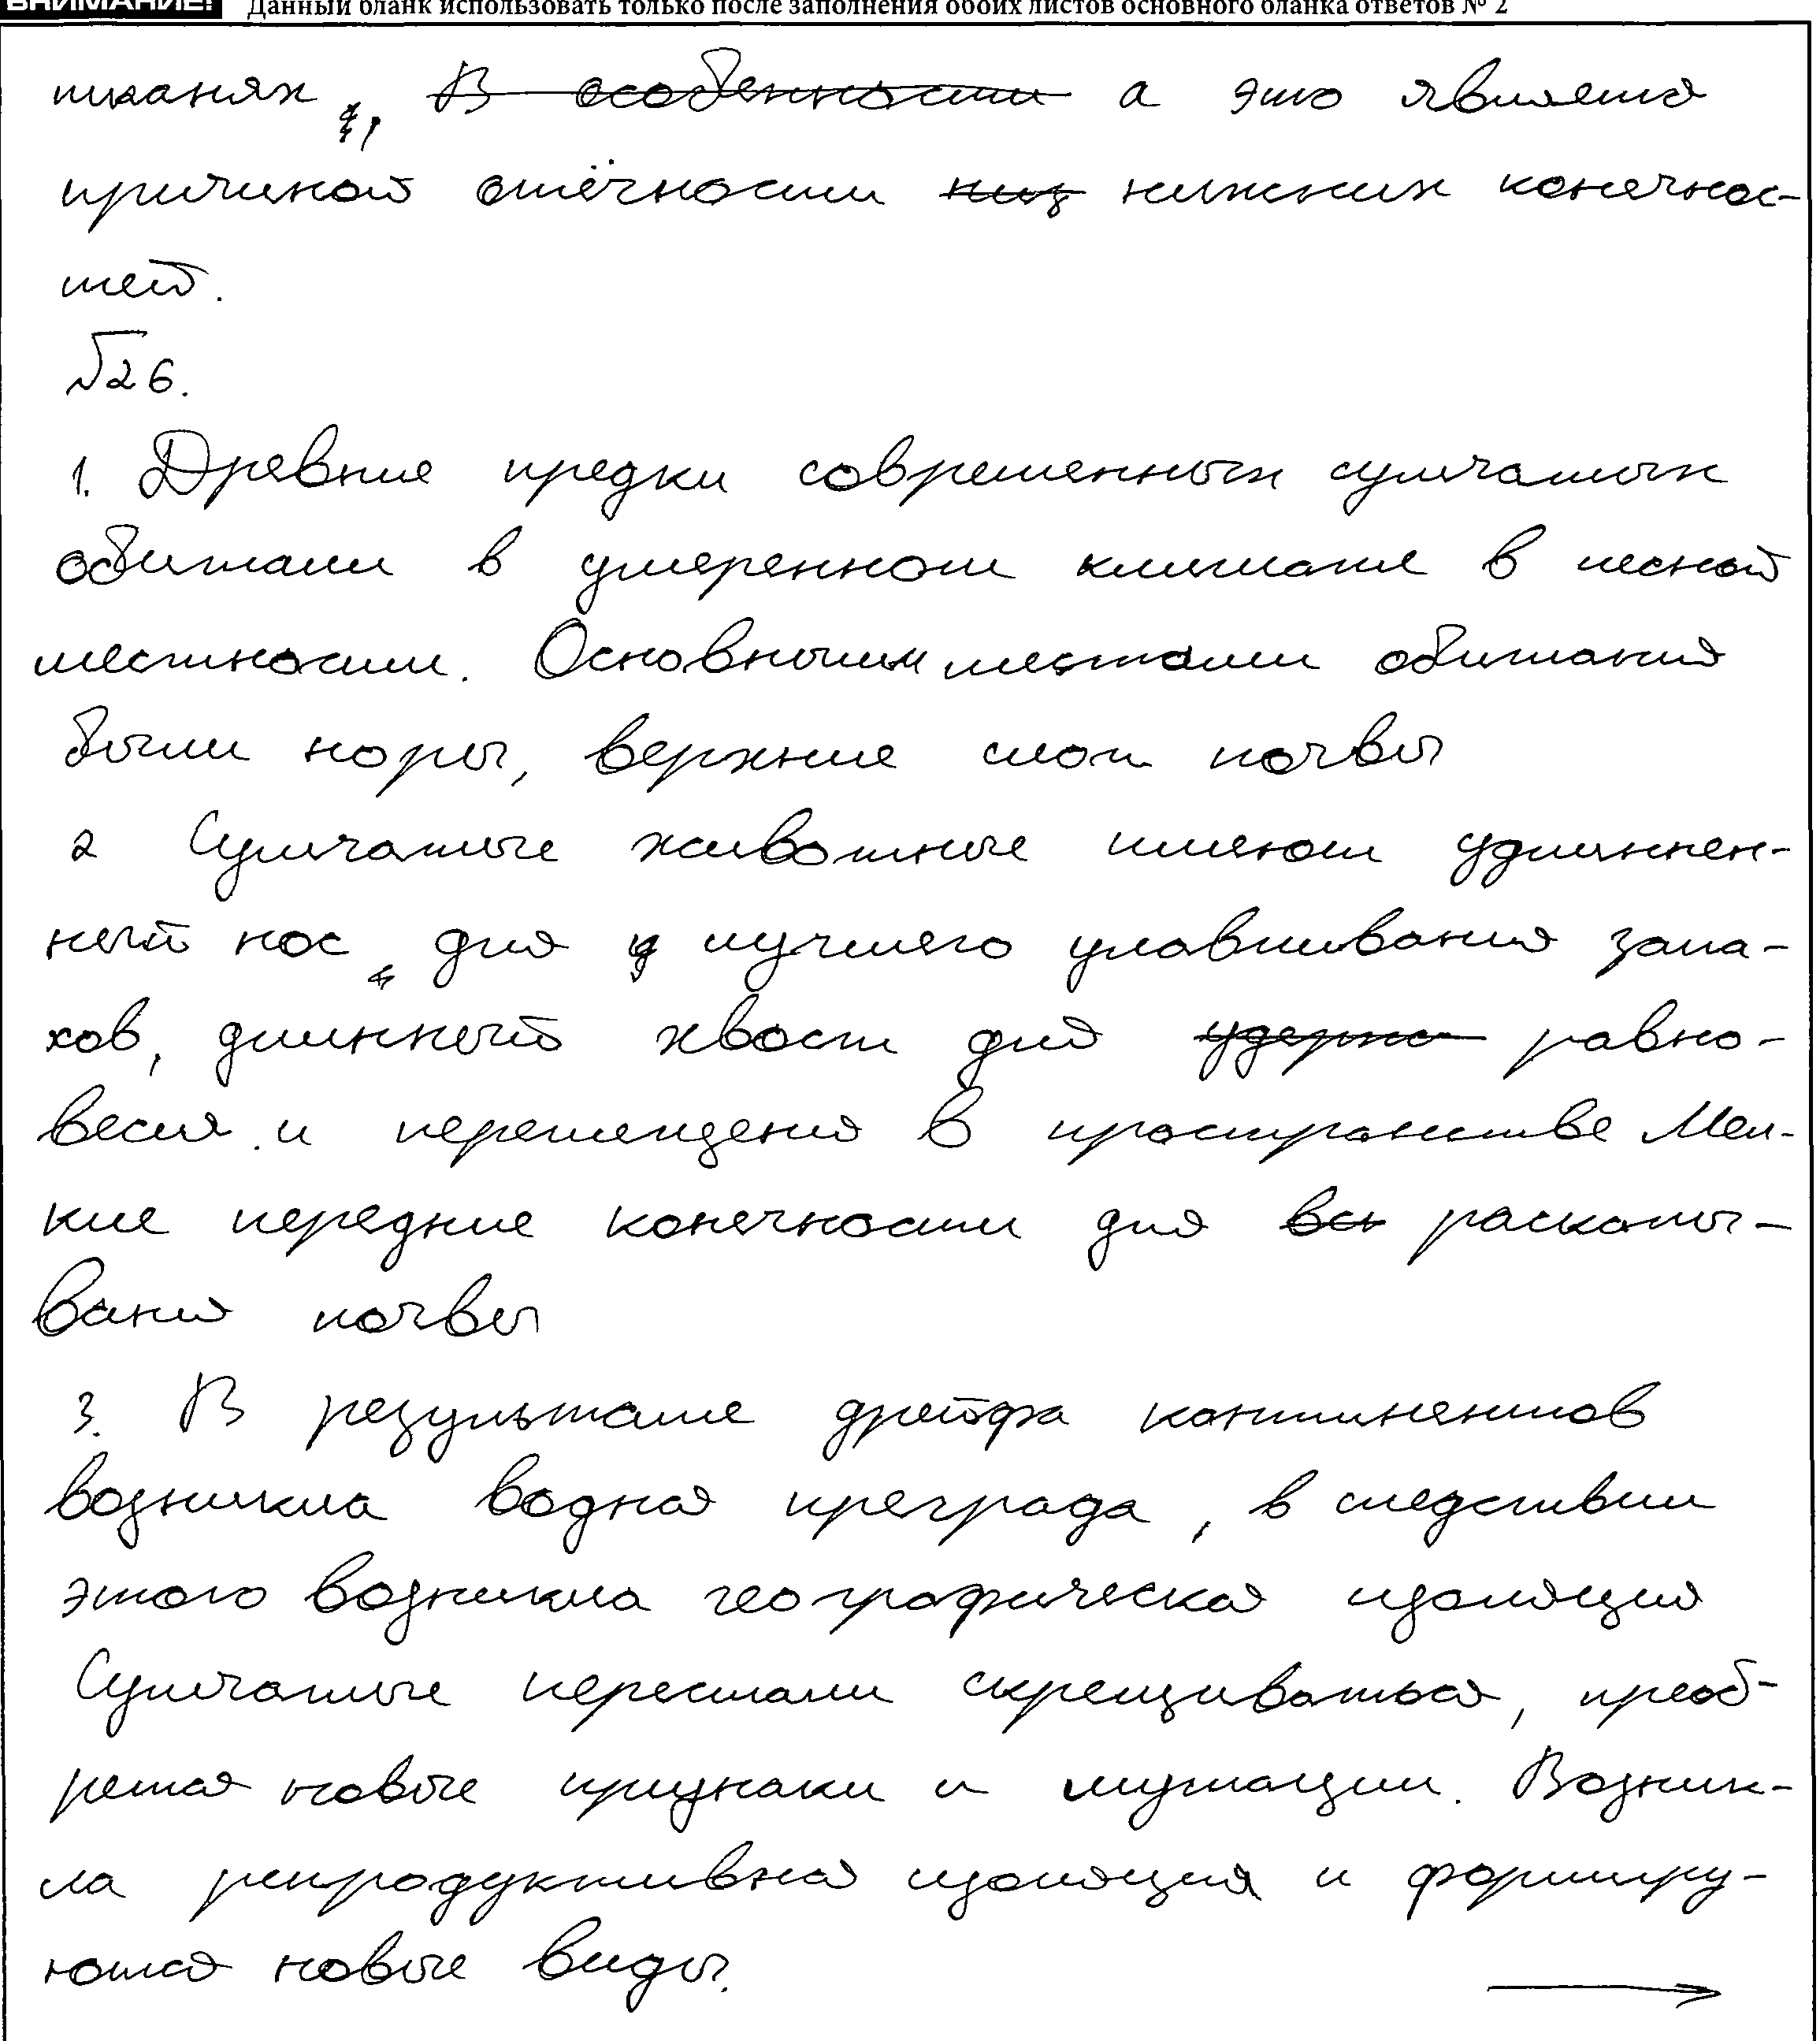 ВНИМАНИЕ! Данный бланк использовать только после заполнения обоих листов основного бланка ответов № 2
тканях, В особенности а это является
причиной отёчности низ нижних конечнос-
тей.
№26.
1. Древние предки современных сумчатых
обитали в умеренном климате в лесной
местности. Основными местами обитания
были норы, верхние слои почвы
2 Сумчатые животные имеют удлиннен-
ный нос для у лучшего улавливания запа-
хов, длинный хвост для удержа равно-
весия и перемещения в пространстве Мел-
кие передние конечности для вс раскапы-
вания почвы
3. В результате дрейфа континентов
возникла водная преграда, в следствии
этого возникла географическая изоляция
Сумчатые перестали скрещиваться, приоб-
ретая новые признаки и мутации. Возник-
ла репродуктивная изоляция и формиру-
ются новые виды.